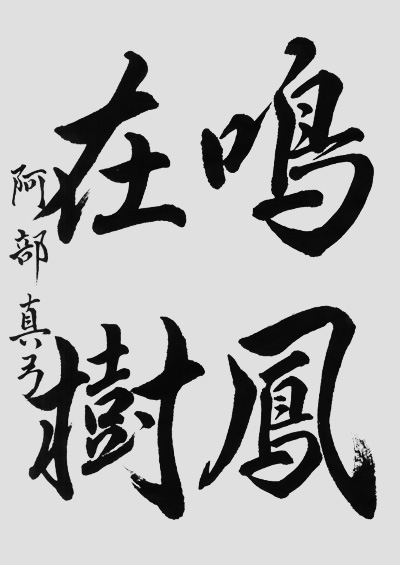 鳴鳳
在樹
阿部真弓